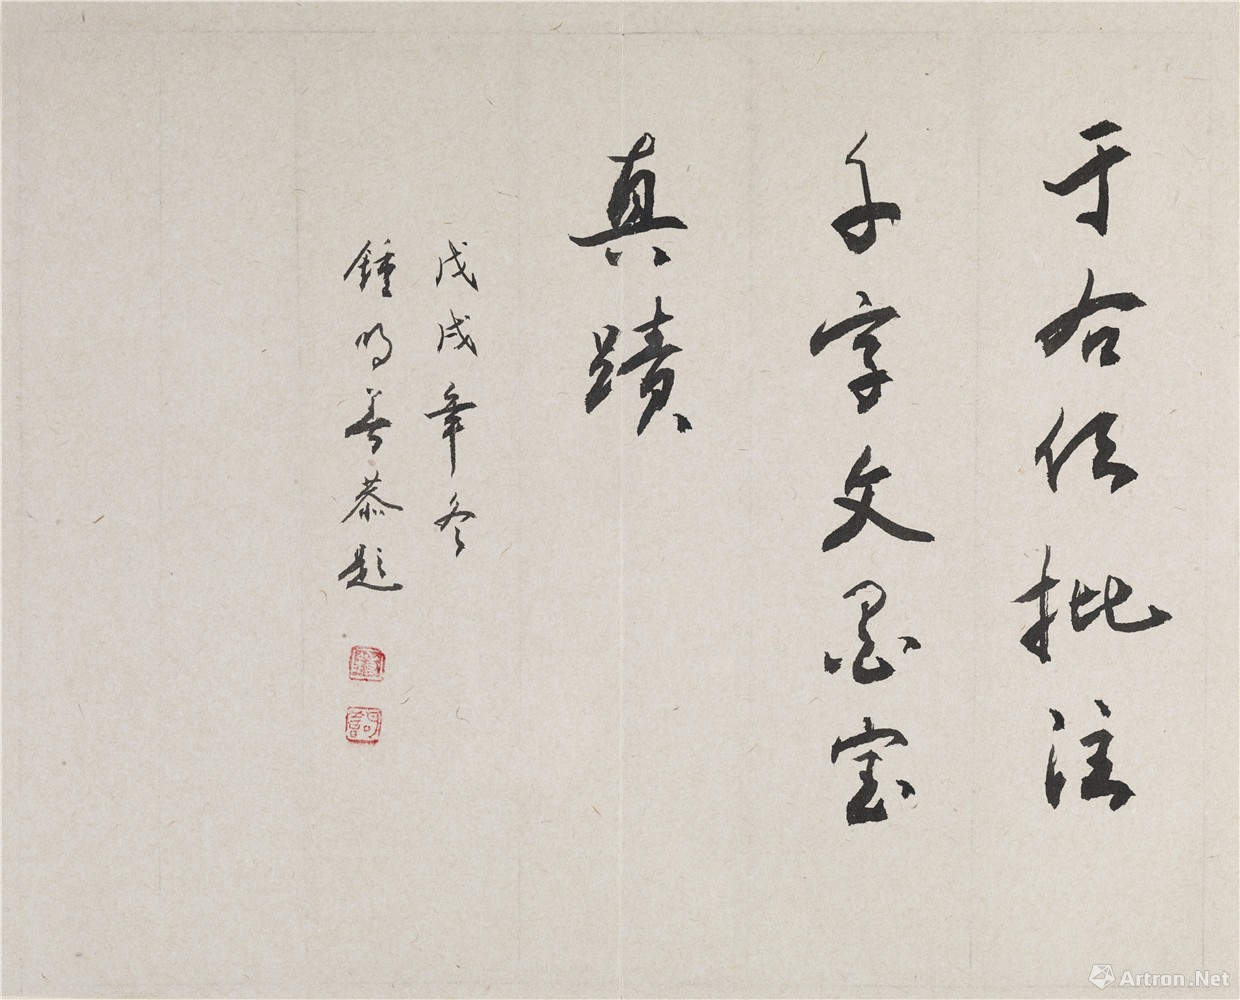 于右任批注
千字文墨宝
真蹟
戊戌年冬
鍾明善恭題
Artron.Net